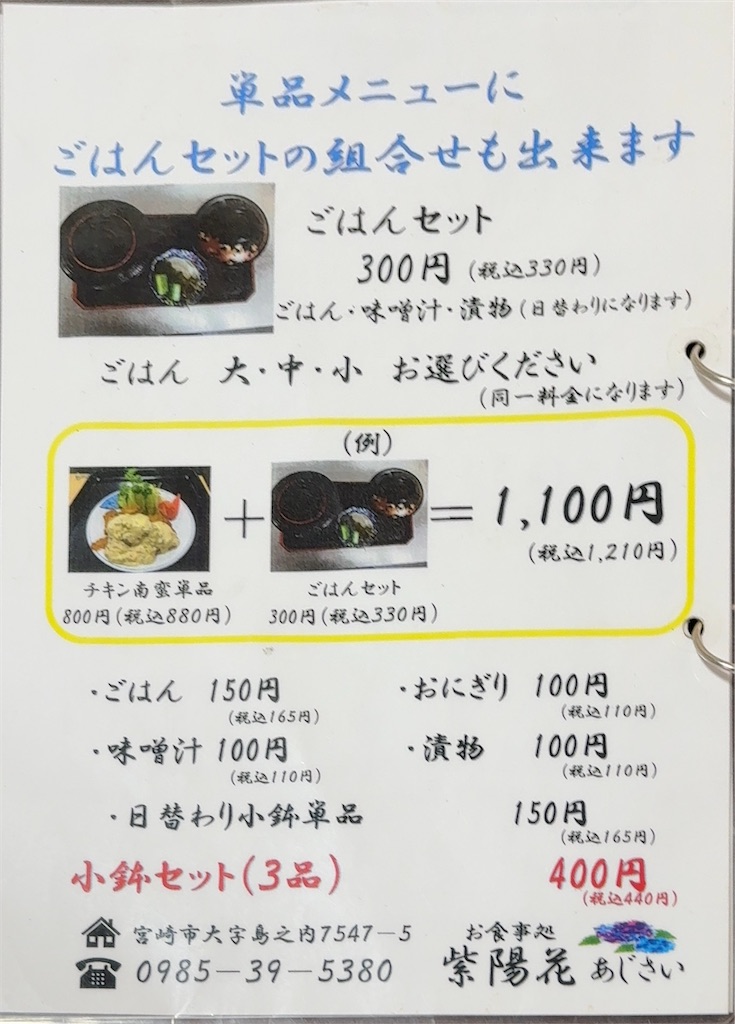 単品メニューに
ごはんセットの組合せも出来ます
ごはんセット
300円(税込330円)
ごはん・味噌汁・漬物(日替わりになります)
ごはん 大・中・小 お選びください
(同一料金になります)
(例)
+ = 1,100円
(税込1,210円)
チキン南蛮単品 ごはんセット
800円(税込880円) 300円(税込330円)
・ごはん 150円 ・おにぎり 100円
(税込165円) (税込110円)
・味噌汁 100円 ・漬物 100円
(税込110円) (税込110円)
・日替わり小鉢単品 150円
(税込165円)
小鉢セット(3品) 400円
(税込440円)
宮崎市大字島之内7547−5
0985−39−5380
お食事処
紫陽花 あじさい